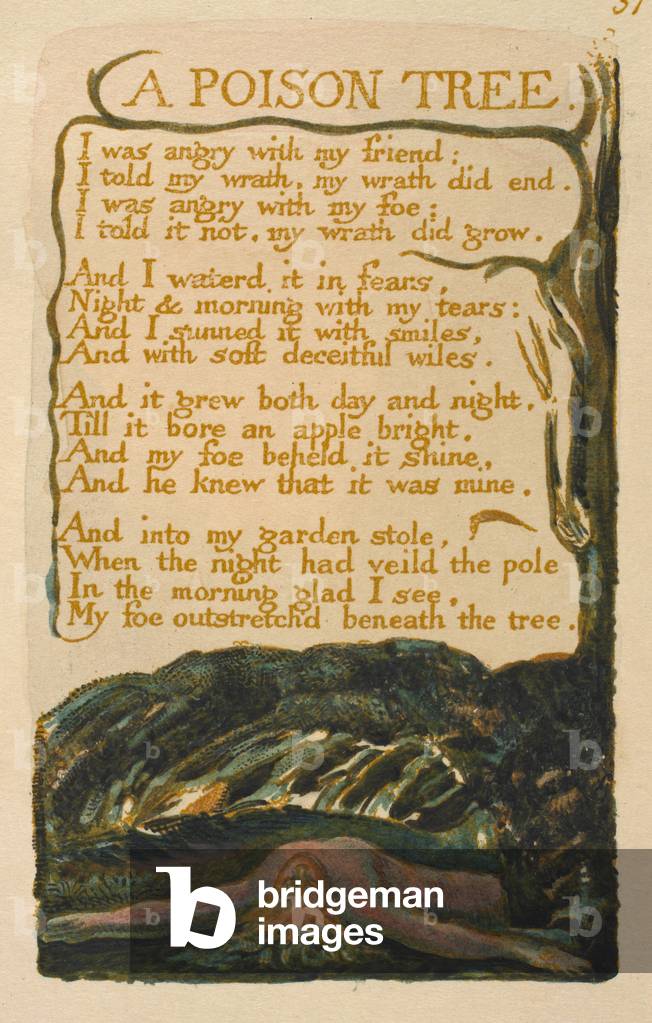 31
A POISON TREE.
I was angry with my friend:
I told my wrath, my wrath did end.
I was angry with my foe:
I told it not, my wrath did grow.
And I waterd it in fears,
Night & morning with my tears:
And I sunned it with smiles,
And with soft deceitful wiles.
And it grew both day and night,
Till it bore an apple bright.
And my foe beheld it shine,
And he knew that it was mine.
And into my garden stole,
When the night had veild the pole
In the morning glad I see,
My foe outstretchd beneath the tree.
b bridgeman
images